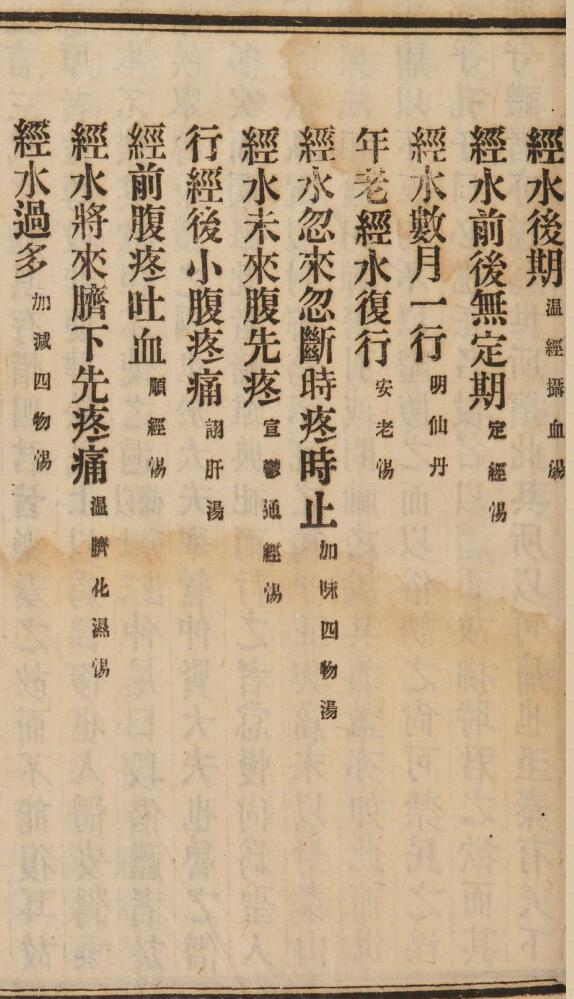 經水後期 温經攝血湯
經水前後無定期 定經湯
經水數月一行 明仙丹
年老經水復行 安老湯
經水忽來忽斷時疼時止 加味四物湯
經水未來腹先疼 宣鬱通經湯
行經後小腹疼痛 調肝湯
經前腹疼吐血 順經湯
經水將來臍下先疼痛 温臍化濕湯
經水過多 加減四物湯